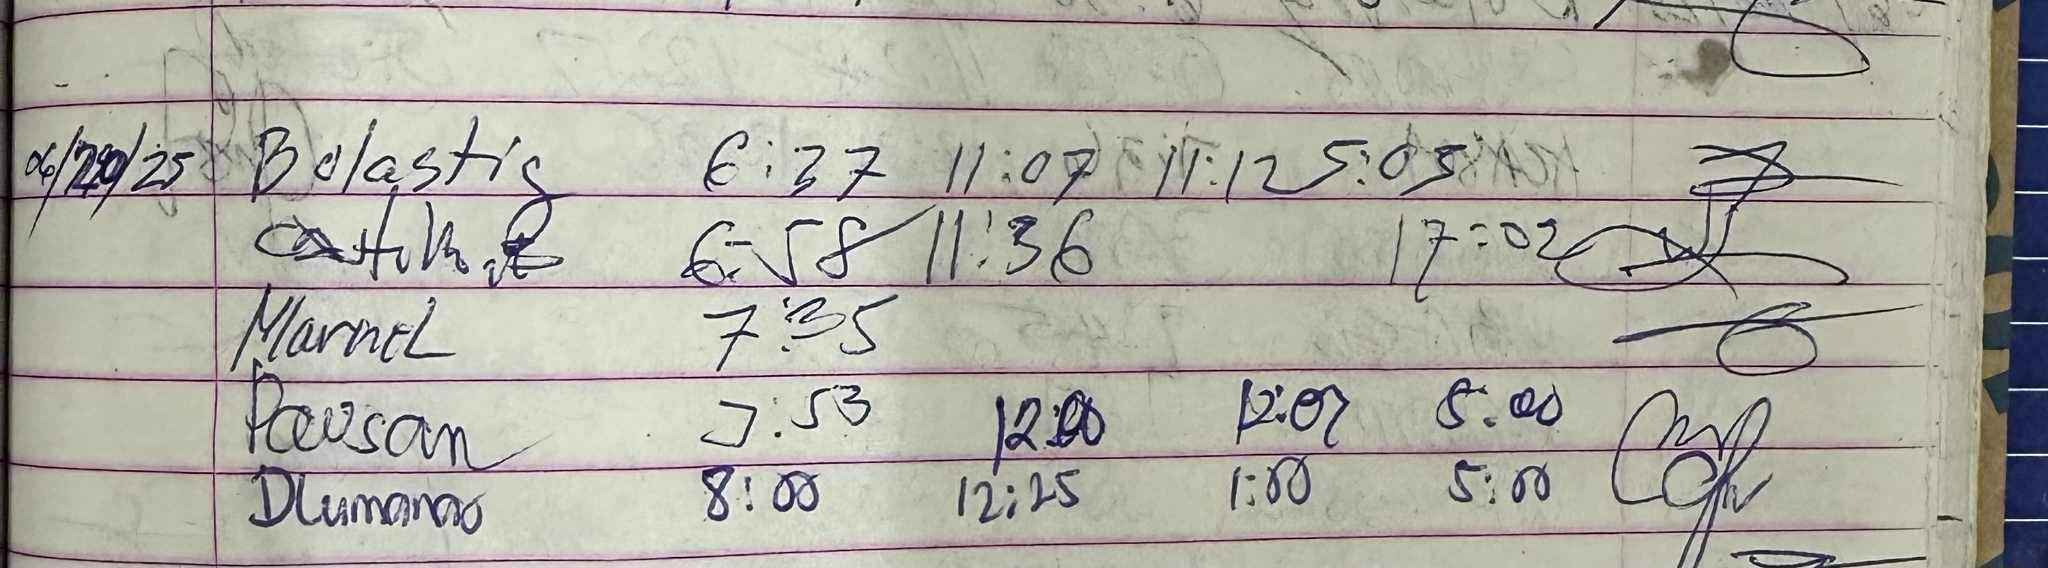 Bolastig 6:27 11:07 11:12 5:05
6:58 11:36 17:02
Marnel 7:35
Pavsan 7:53 12:00 12:07 5:00
Dlumanao 8:00 12:25 1:00 5:00